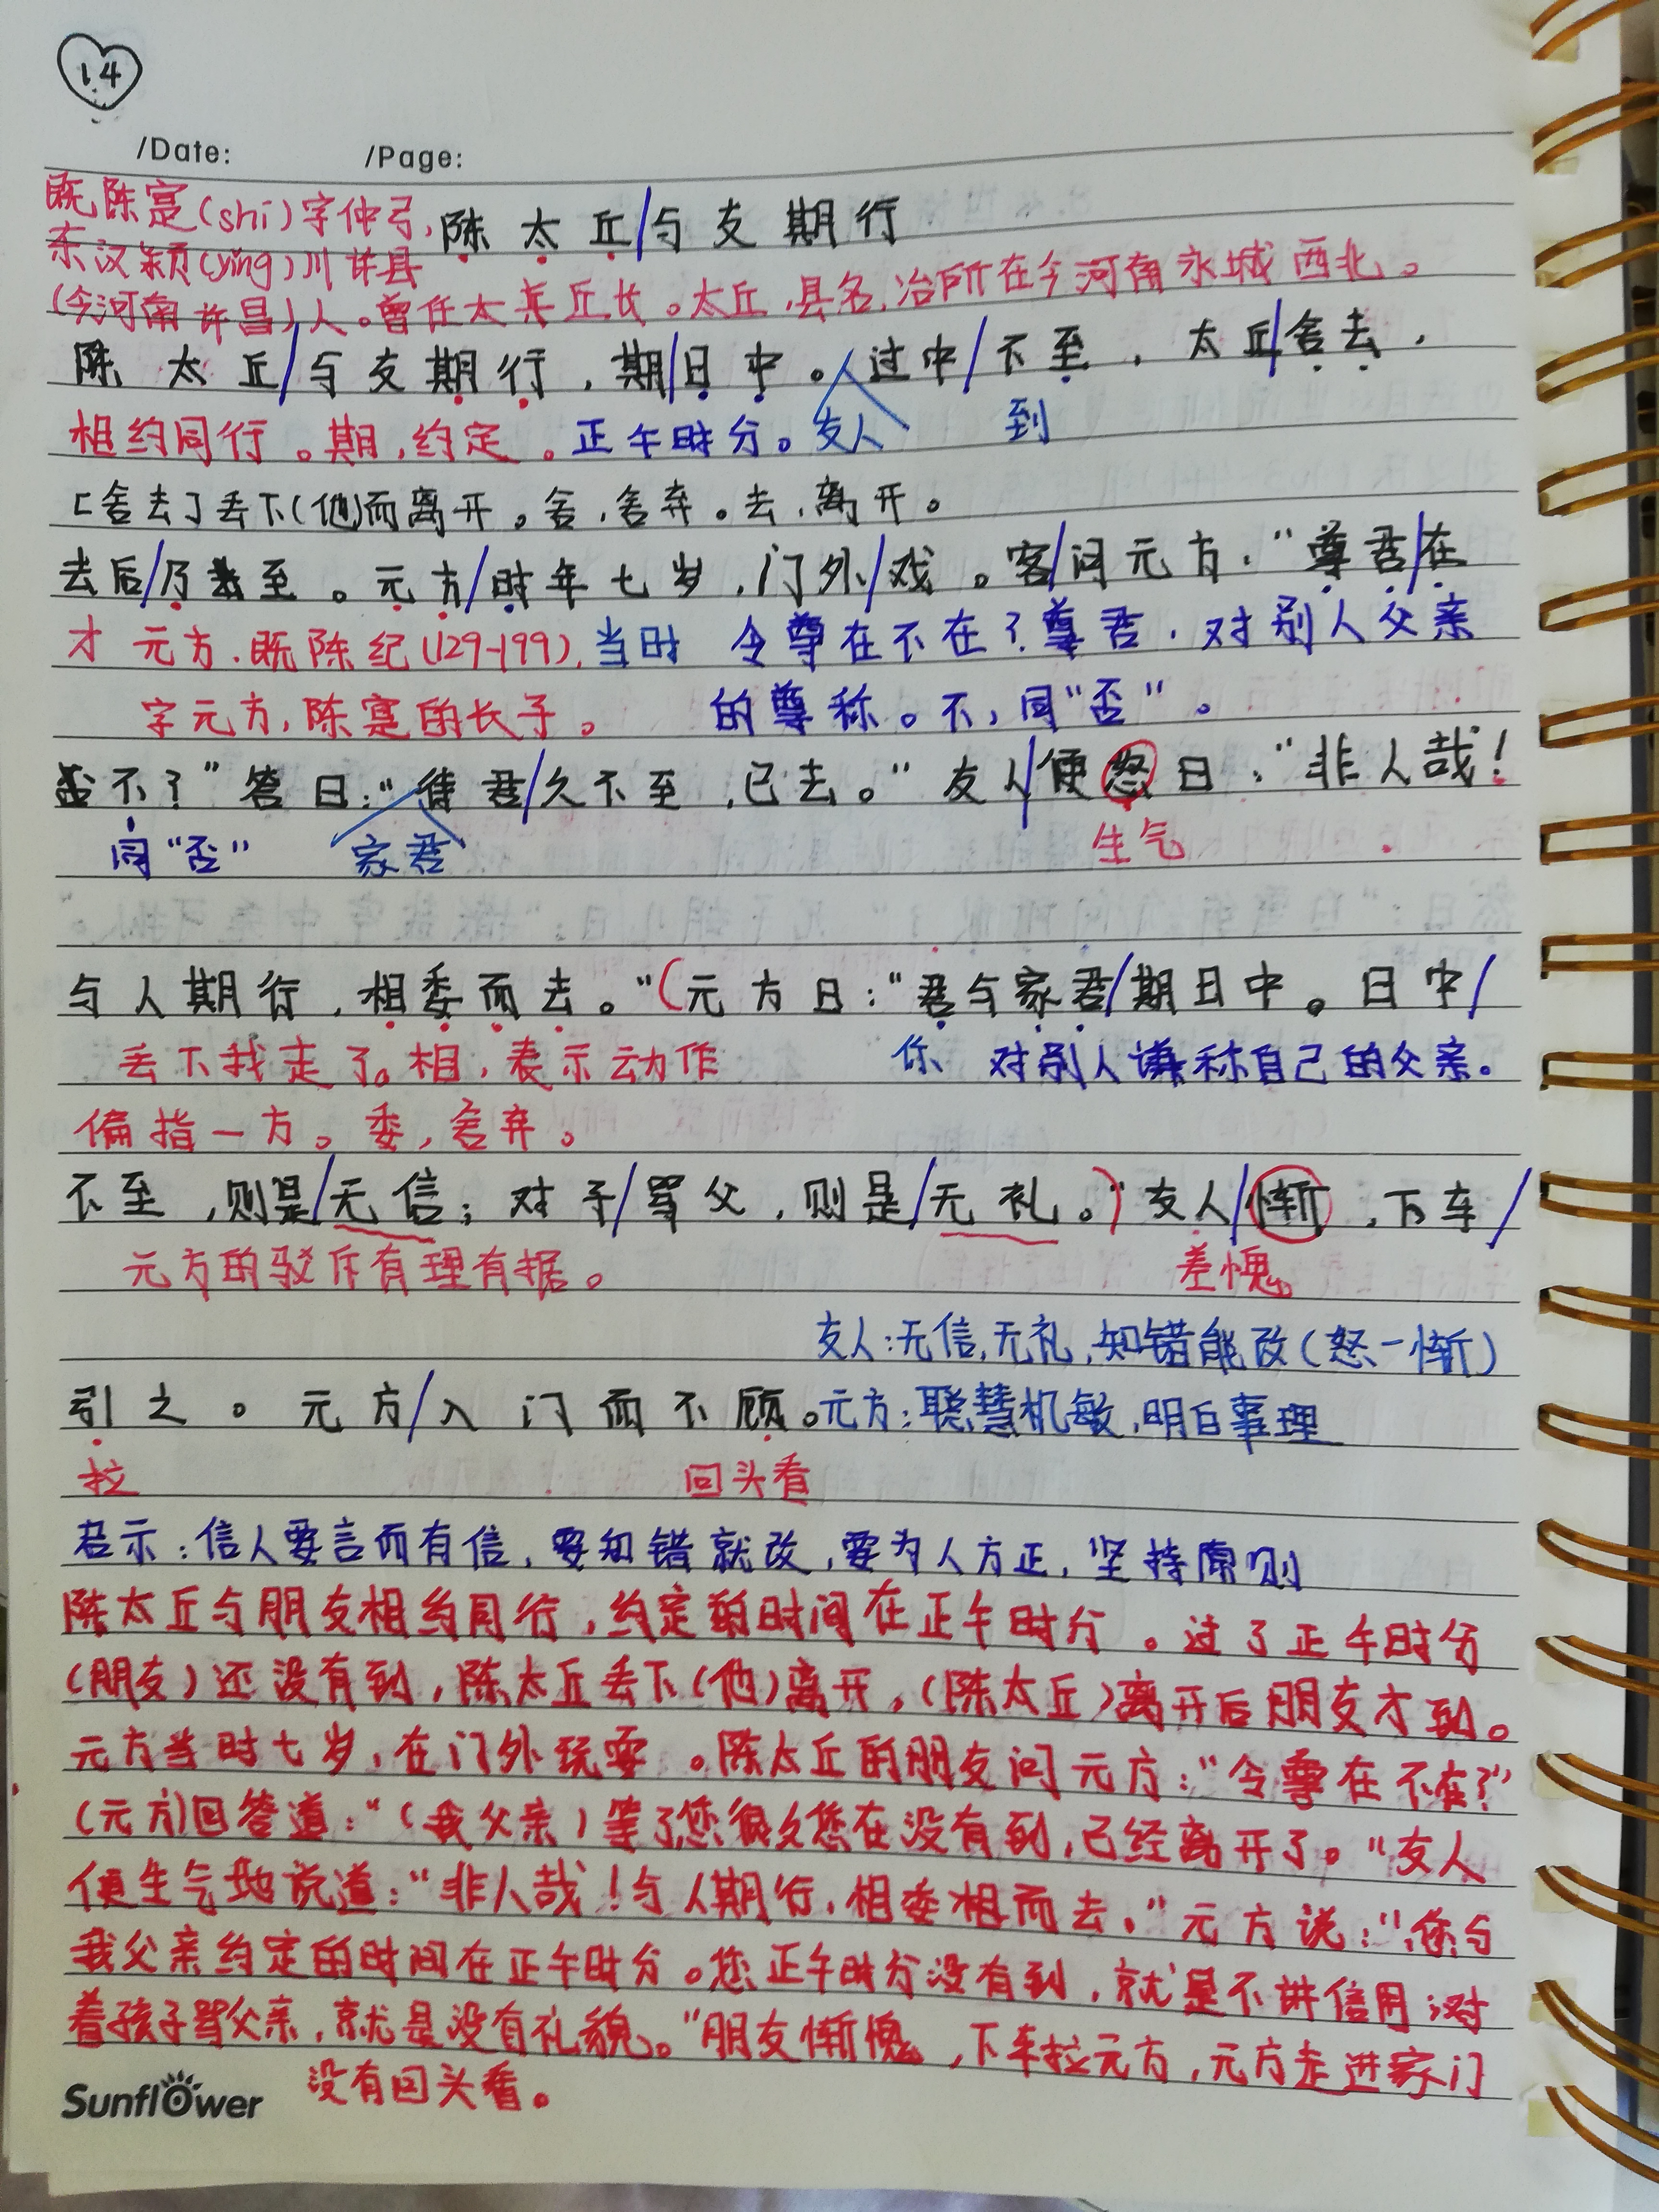 14
/Date: /Page:
既陈寔(shí)字仲弓,
东汉颍(yǐng)川许县
陈太丘/与友期行
(今河南许昌)人。曾任太丘长。太丘,县名,治所在今河南永城西北。
陈太丘/与友期行,期/日中。过中/不至,太丘/舍去,
相约同行。期,约定。正午时分。友人 到
[舍去]丢下(他)而离开。舍,舍弃。去,离开。
去后/乃至。元方/时年七岁,门外/戏。客/问元方:“尊君/在
才 元方,既陈纪(129-199), 当时 令尊在不在?尊君,对别人父亲
字元方,陈寔的长子。 的尊称。不,同“否”。
不?”答曰:“待君/久不至,已去。”友人/便怒曰:“非人哉!
同“否” 家君 生气
与人期行,相委而去。”(元方曰:“君与家君/期日中。日中/
丢下我走了。相,表示动作 你 对别人谦称自己的父亲。
偏指一方。委,舍弃。
不至,则是/无信;对子/骂父,则是/无礼。”)友人/惭,下车/
元方的驳斥有理有据。 差愧。
友人:无信,无礼,知错能改(怒-惭)
引之。元方/入门而不顾。元方:聪慧机敏,明白事理
拉 回头看
启示:信人要言而有信,要知错就改,要为人方正,坚持原则
陈太丘与朋友相约同行,约定的时间在正午时分。过了正午时分
(朋友)还没有到,陈太丘丢下(他)离开,(陈太丘)离开后朋友才到。
元方当时七岁,在门外玩耍。陈太丘的朋友问元方:“令尊在不在?”
(元方)回答道:“(我父亲)等了您很久您在没有到,已经离开了。”友人
便生气地说道:“非人哉!与人期行,相委相而去。”元方说:“您与
我父亲约定的时间在正午时分。您正午时分没有到,就是不讲信用;对
着孩子骂父亲,就是没有礼貌。”朋友惭愧,下车拉元方,元方走进家门
没有回头看。
Sunflower